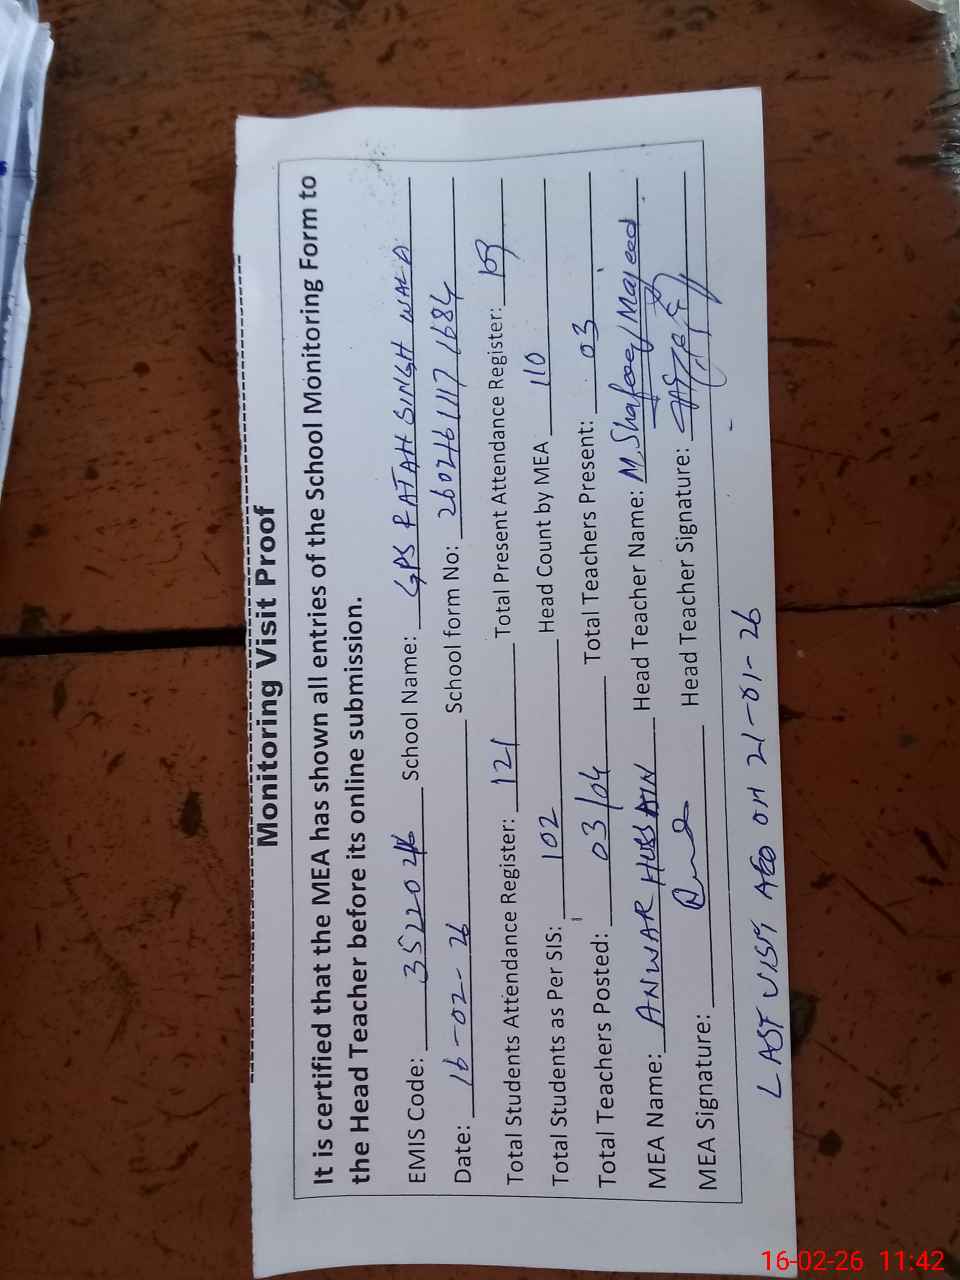 Monitoring Visit Proof
It is certified that the MEA has shown all entries of the School Monitoring Form to
the Head Teacher before its online submission.
EMIS Code: School Name: GPS RATAH SINGH WALA
Date: 16-02-26 School form No:
Total Students Attendance Register: 121 Total Present Attendance Register:
Total Students as Per SIS: 102 Head Count by MEA 110
Total Teachers Posted: 03/04 Total Teachers Present: 03
MEA Name: ANWAR HUSSAIN Head Teacher Name: M. Shafeeq/Majeed
MEA Signature: Head Teacher Signature:
LAST VISIT AEO ON 21-01-26
16-02-26 11:42